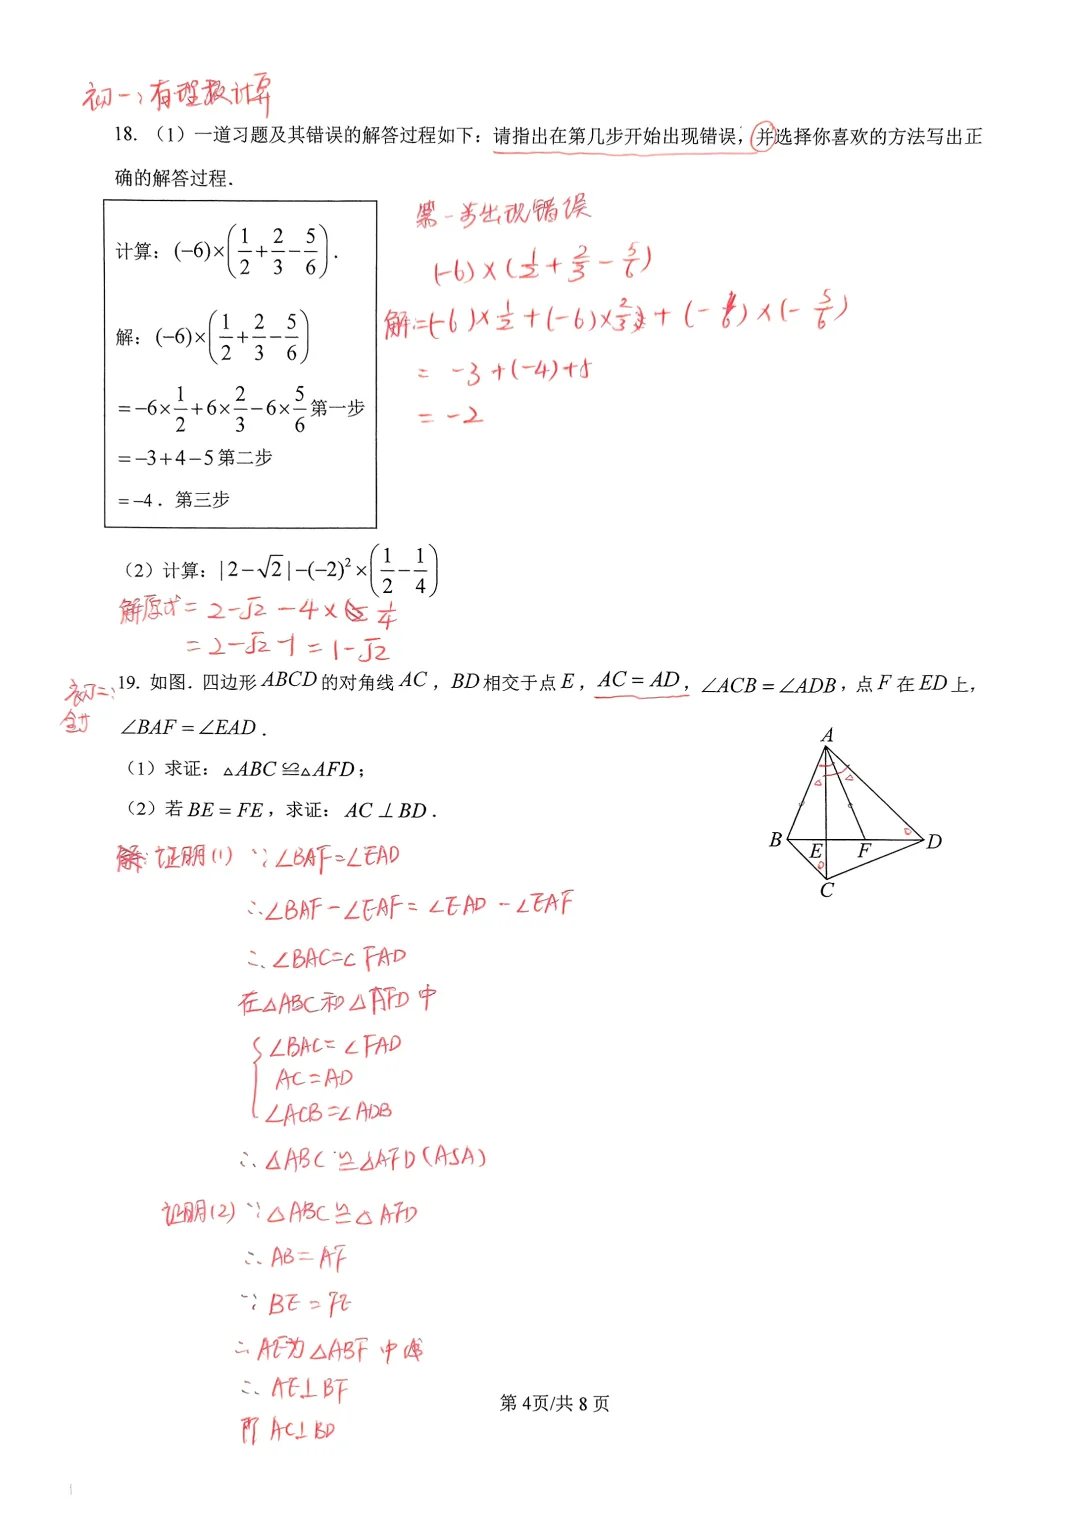 初一:有理数计算
18. （1）一道习题及其错误的解答过程如下：请指出在第几步开始出现错误，并选择你喜欢的方法写出正
确的解答过程.
计算：(−6)×(1/2+2/3−5/6).
解：(−6)×(1/2+2/3−5/6)
=−6×1/2+6×2/3−6×5/6 第一步
=−3+4−5 第二步
=−4. 第三步
第一步出现错误
(-6)×(1/2+2/3-5/6)
解:=(-6)×1/2+(-6)×2/3+(-6)×(-5/6)
= -3+(-4)+5
= -2
（2）计算：|2−√2|−(−2)²×(1/2−1/4)
解原式= 2-√2 -4×1/4
= 2-√2 -1 = 1-√2
初二:
全等
19. 如图. 四边形 ABCD 的对角线 AC，BD 相交于点 E，AC = AD，∠ACB = ∠ADB，点 F 在 ED 上，
∠BAF = ∠EAD.
（1）求证：△ABC ≌ △AFD；
（2）若 BE = FE，求证：AC ⊥ BD.
A
B
E
F
D
C
证明(1) ∵∠BAF=∠EAD
∴∠BAF-∠EAF=∠EAD-∠EAF
∴∠BAC=∠FAD
在△ABC和△AFD中
∠BAC=∠FAD
AC=AD
∠ACB=∠ADB
∴△ABC≌△AFD(ASA)
证明(2) ∵△ABC≌△AFD
∴AB=AF
∵BE=FE
∴AE为△ABF中线
∴AE⊥BF
即AC⊥BD
第 4页/共 8 页